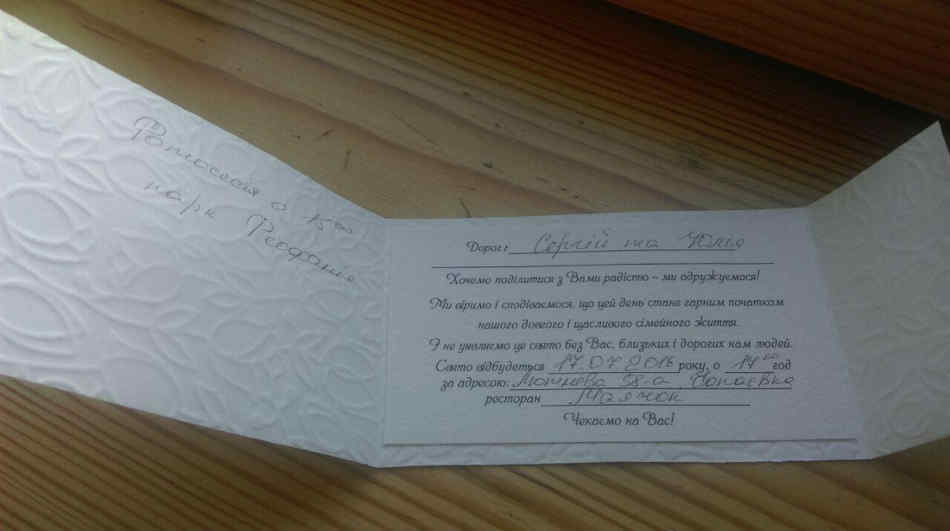 Фотосесія о 15⁰⁰
парк Феофанія
Дорогі Сергій та Юлія
Хочемо поділитися з Вами радістю – ми одружуємося!
Ми віримо і сподіваємося, що цей день стане гарним початком
нашого довгого і щасливого сімейного життя.
І не уявляємо це свято без Вас, близьких і дорогих нам людей.
Свято відбудеться 17.07.2016 року, о 17⁰⁰ год
за адресою: 38-а
ресторан Маячок
Чекаємо на Вас!